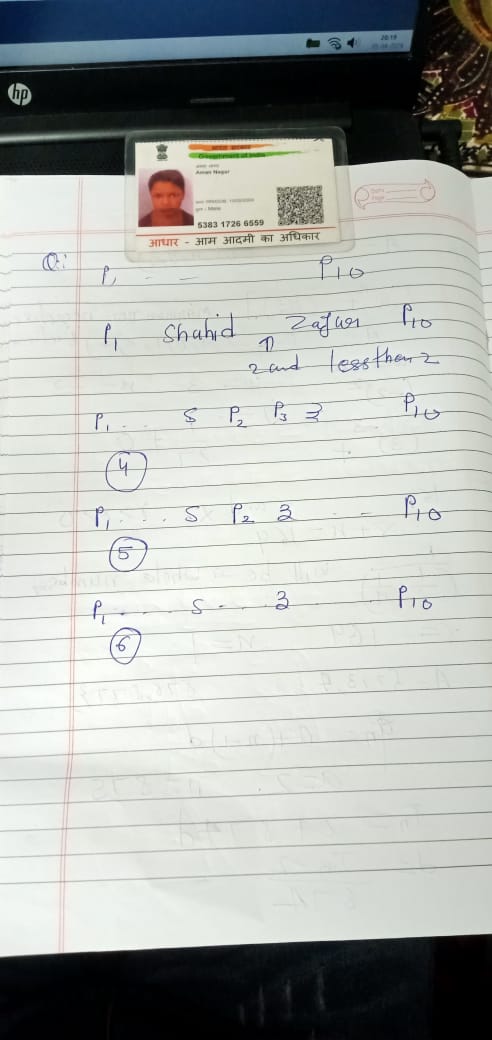 20:19
hp
Government of India
Aman Nagar
5383 1726 6559
आधार - आम आदमी का अधिकार
Q:
P1 - - P10
P1 Shahid Zafar P10
2 and less than 2
P1 ... S P2 P3 Z P10
4
P1 ... S P2 Z - - P10
5
P1 - ... S - .. Z P10
6